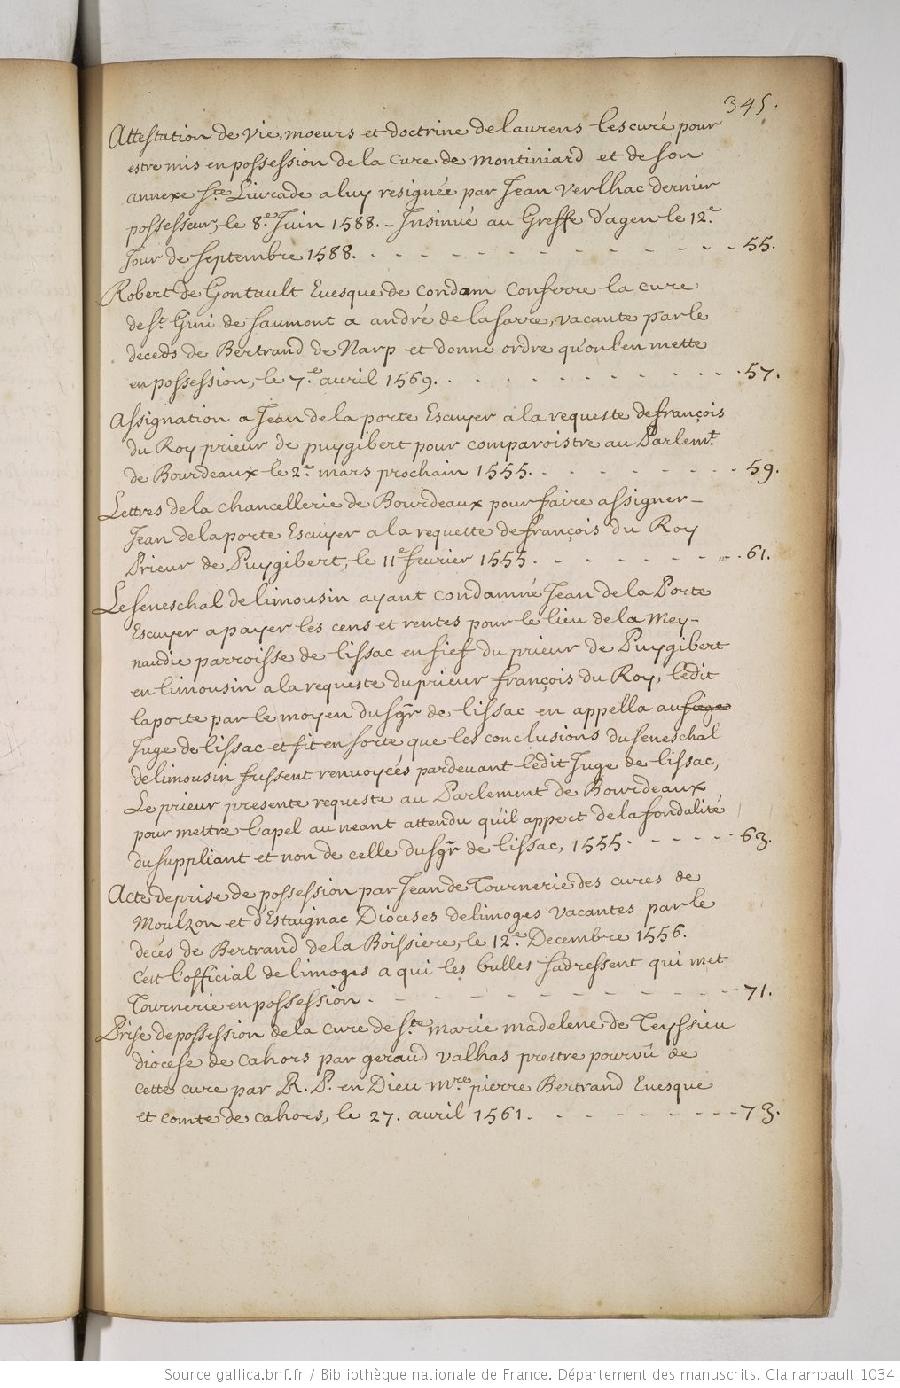 345.
Attestation de vie, moeurs et doctrine de laurens lescuré pour
estre mis en possession de la cure de montiniard et de son
annexe Ste Livrade a luy resignée par Jean Verlhac dernier
possesseur, le 8.e Juin 1588. - Insinué au Greffe d'agen le 12.e
Jour de septembre 1588. . . . . . . . . . . . 55.
Robert de Gontault Evesque de Condam Confere la cure
de St Gini de saumont a andré de la sarre, vacante par le
deceds de Bertrand de Narp et donne ordre qu'on l'en mette
en possession, le 7.e avril 1569. . . . . . . . . . 57.
Assignation a Jean de la porte Escuyer a la requeste de françois
du Roy prieur de puygibert pour comparoistre au Parlemt
de Bourdeaux le 2.e mars prochain 1555. . . . . . . 59.
Lettres de la chancellerie de Bourdeaux pour faire assigner
Jean de la porte Escuyer a la requette de françois du Roy
Prieur de Puygibert, le 11.e fevrier 1555. . . . . . . 61.
Le seneschal de limousin ayant condamné Jean de la Porte
Escuyer a payer les cens et rentes pour le lieu de la mey-
naudie parroisse de lissac en fief du prieur de Puygibert
en limousin a la requeste du prieur françois du Roy, ledit
laporte par le moyen du sgr de lissac en appella au siege
Juge de lissac et fit en sorte que les conclusions du seneschal
de limousin fussent renvoyées pardevant ledit Juge de lissac,
Le prieur presente requeste au Parlement de Bourdeaux
pour mettre l'apel au neant attendu qu'il appert de la fondalité
du suppliant et non de celle du sgr de lissac, 1555. - - - - - 63.
Acte de prise de possession par Jean de Tournerie des cures de
Moulzon et d'Estaignac Dioceses de limoges vacantes par le
deces de Bertrand de la Boissiere, le 12.e Decembre 1556.
C'est l'official de limoges a qui les bulles s'adressent qui met
Tournerie en possession . - - - - - - - - - 71.
Prise de possession de la cure de Ste marie madelene de Teyssieu
diocese de cahors par geraud valhas prestre pourvû de
cette cure par R. P. en Dieu mre pierre Bertrand Evesque
et comte de cahors, le 27. avril 1561. - - - - - - 73.
Source gallica.bnf.fr / Bibliothèque nationale de France. Département des manuscrits. Clairambault 1034